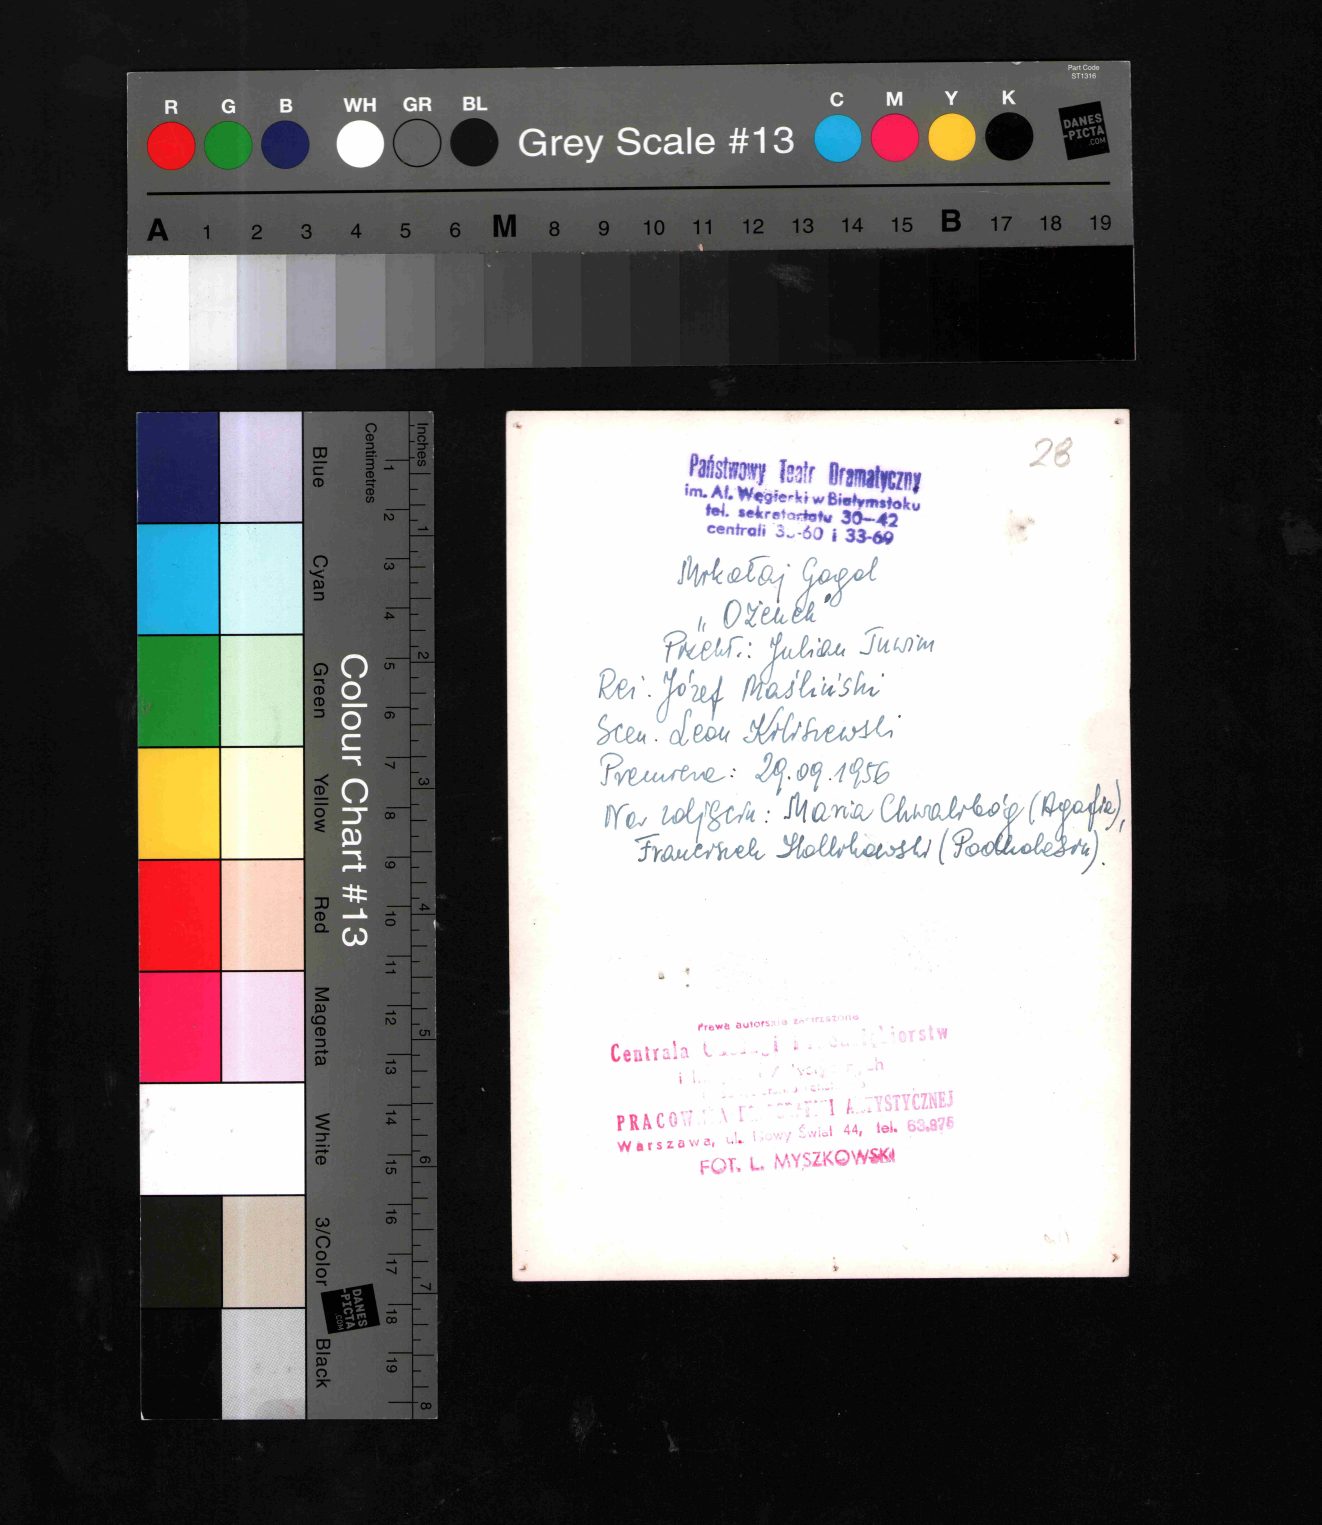 Part Code
ST1316
R G B WH GR BL Grey Scale #13 C M Y K
DANES
-PICTA
.COM
A 1 2 3 4 5 6 M 8 9 10 11 12 13 14 15 B 17 18 19
Colour Chart #13
Blue
Cyan
Green
Yellow
Red
Magenta
White
3/Color
Black
Centimetres
1 2 3 4 5 6 7 8 9 10 11 12 13 14 15 16 17 18 19
Inches
1 2 3 4 5 6 7 8
DANES
-PICTA
.COM
28
Państwowy Teatr Dramatyczny
im. Al. Węgierki w Białymstoku
tel. sekretariatu 30-42
centrali 33-60 i 33-69
Mikołaj Gogol
„Ożenek"
Przekł.: Julian Tuwim
Reż. Józef Maśliński
Scen. Leon
Premiera: 29.09.1956
Na zdjęciu: Maria Chwalibóg (Agafia),
Franciszek (Podkolesin).
Prawa autorskie zastrzeżone
Centrala
PRACOWNIA ARTYSTYCZNEJ
Warszawa, ul. Nowy Świat 44, tel. 63.876
FOT. L. MYSZKOWSKI